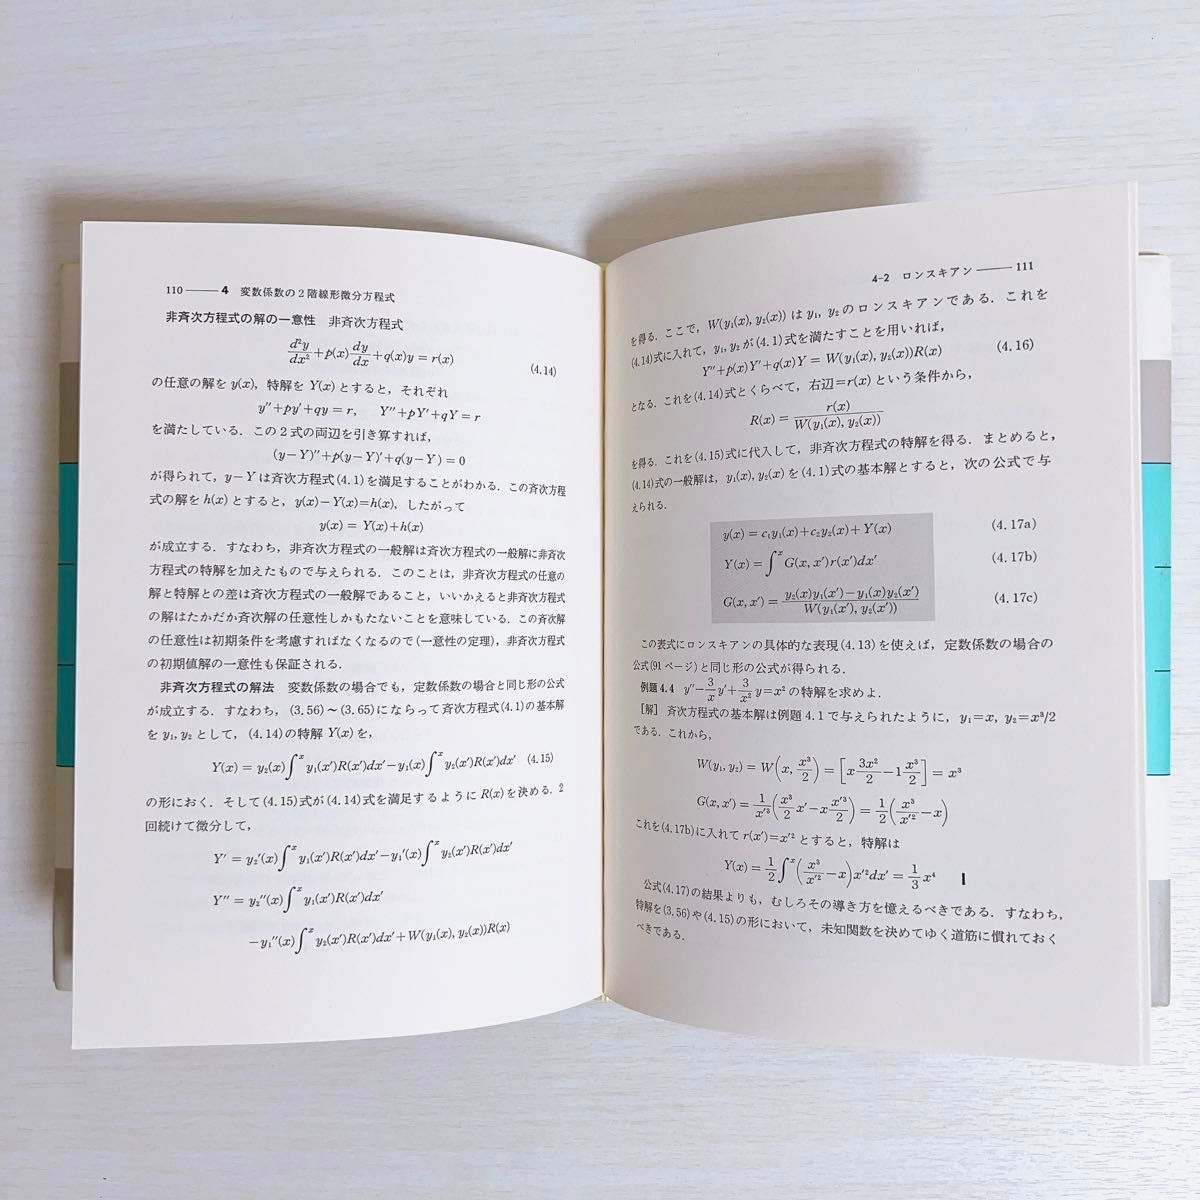 110――4 変数係数の2階線形微分方程式
非斉次方程式の解の一意性 非斉次方程式
d²y/dx²+p(x)dy/dx+q(x)y = r(x) (4.14)
の任意の解を y(x), 特解を Y(x) とすると, それぞれ
y''+py'+qy = r, Y''+pY'+qY = r
を満たしている. この2式の両辺を引き算すれば,
(y−Y)''+p(y−Y)'+q(y−Y) = 0
が得られて, y−Y は斉次方程式(4.1)を満足することがわかる. この斉次方程
式の解を h(x) とすると, y(x)−Y(x)=h(x), したがって
y(x) = Y(x)+h(x)
が成立する. すなわち, 非斉次方程式の一般解は斉次方程式の一般解に非斉次
方程式の特解を加えたもので与えられる. このことは, 非斉次方程式の任意の
解と特解との差は斉次方程式の一般解であること, いいかえると非斉次方程式
の解はたかだか斉次解の任意性しかもたないことを意味している. この斉次解
の任意性は初期条件を考慮すればなくなるので(一意性の定理), 非斉次方程式
の初期値解の一意性も保証される.
非斉次方程式の解法 変数係数の場合でも, 定数係数の場合と同じ形の公式
が成立する. すなわち, (3.56)～(3.65)にならって斉次方程式(4.1)の基本解
を y₁, y₂ として, (4.14)の特解 Y(x) を,
Y(x) = y₂(x)∫ˣy₁(x')R(x')dx'−y₁(x)∫ˣy₂(x')R(x')dx' (4.15)
の形におく. そして(4.15)式が(4.14)式を満足するように R(x) を決める. 2
回続けて微分して,
Y' = y₂'(x)∫ˣy₁(x')R(x')dx'−y₁'(x)∫ˣy₂(x')R(x')dx'
Y'' = y₂''(x)∫ˣy₁(x')R(x')dx'
−y₁''(x)∫ˣy₂(x')R(x')dx'+W(y₁(x), y₂(x))R(x)
4-2 ロンスキアン――111
を得る. ここで, W(y₁(x), y₂(x)) は y₁, y₂ のロンスキアンである. これを
(4.14)式に入れて, y₁, y₂ が(4.1)式を満たすことを用いれば,
Y''+p(x)Y'+q(x)Y = W(y₁(x), y₂(x))R(x) (4.16)
となる. これを(4.14)式とくらべて, 右辺=r(x) という条件から,
R(x) = r(x)/W(y₁(x), y₂(x))
を得る. これを(4.15)式に代入して, 非斉次方程式の特解を得る. まとめると,
(4.14)式の一般解は, y₁(x), y₂(x) を(4.1)式の基本解とすると, 次の公式で与
えられる.
y(x) = c₁y₁(x)+c₂y₂(x)+Y(x) (4.17a)
Y(x) = ∫ˣG(x, x')r(x')dx' (4.17b)
G(x, x') = y₂(x)y₁(x')−y₁(x)y₂(x')/W(y₁(x'), y₂(x')) (4.17c)
この表式にロンスキアンの具体的な表現(4.13)を使えば, 定数係数の場合の
公式(91ページ)と同じ形の公式が得られる.
例題4.4 y''−3/x y'+3/x² y=x² の特解を求めよ.
[解] 斉次方程式の基本解は例題4.1で与えられたように, y₁=x, y₂=x³/2
である. これから,
W(y₁, y₂) = W(x, x³/2) = [x 3x²/2−1 x³/2] = x³
G(x, x') = 1/x'³(x³/2 x'−x x'³/2) = 1/2(x³/x'²−x)
これを(4.17b)に入れて r(x')=x'² とすると, 特解は
Y(x) = 1/2∫ˣ(x³/x'²−x)x'²dx' = 1/3 x⁴ ▌
公式(4.17)の結果よりも, むしろその導き方を憶えるべきである. すなわち,
特解を(3.56)や(4.15)の形において, 未知関数を決めてゆく道筋に慣れておく
べきである.